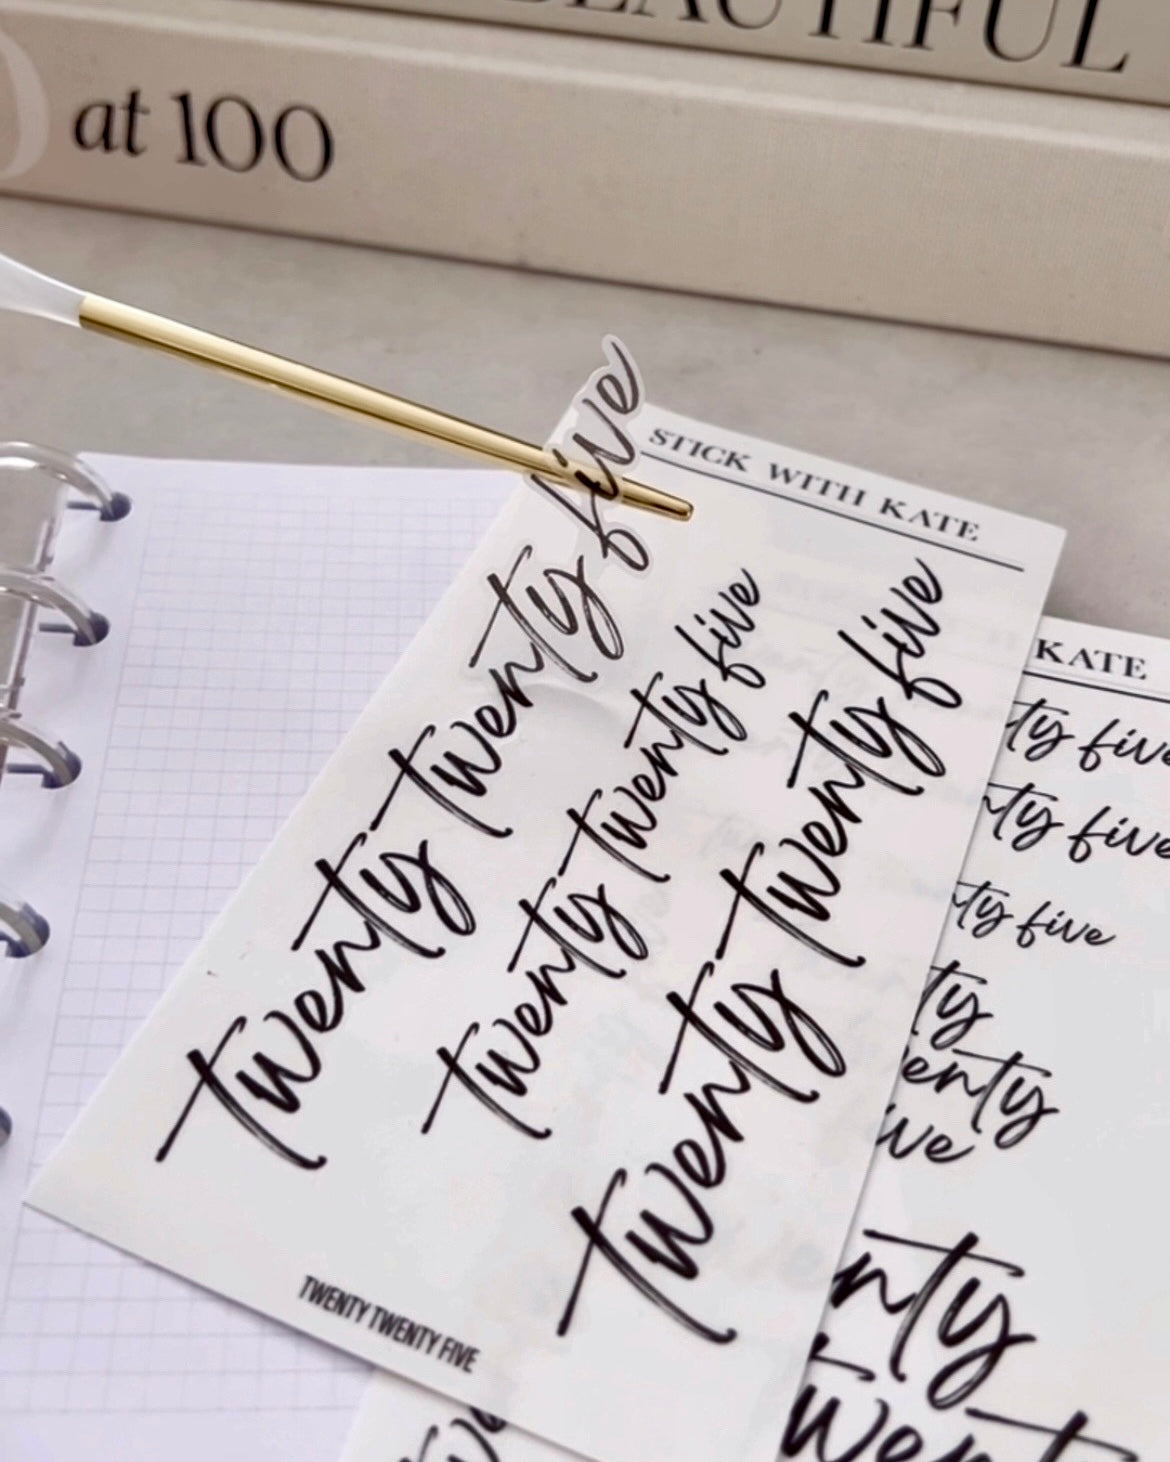 BEAUTIFUL
at 100
STICK WITH KATE
twenty twenty five
twenty twenty five
twenty twenty five
TWENTY TWENTY FIVE
KATE
ty five
nty five
nty five
ty
enty
ive
nty
twent